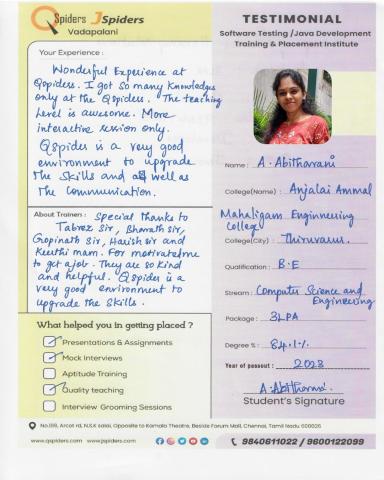 QSpiders JSpiders
Vadapalani
Your Experience :
Wonderful Experience at
Qspiders. I got so many knowledges
only at the Qspiders. The teaching
level is awesome. More
interactive session only.
Qspiders is a very good
environment to upgrade
the skills and as well as
the communication.
About Trainers : Special thanks to
Tabrez Sir, Bharath sir,
Gropinath Sir, Harish sir and
Keerthi mam. For motivate me
to get a job. They are so kind
and helpful. Qspider is a
very good environment to
upgrade the skills.
What helped you in getting placed ?
Presentations & Assignments
Mock Interviews
Aptitude Training
Quality teaching
Interview Grooming Sessions
TESTIMONIAL
Software Testing /Java Development
Training & Placement Institute
Name : A. Abitharani
College(Name) : Anjalai Ammal
Mahaligam Enginnering
College
College(City) : Thiruvarur.
Qualification : B.E
Stream : Computer Science and
Engineering
Package : 3LPA
Degree % : 84.1%
Year of passout : 2023
Student's Signature
No.199, Arcot rd, N.S.K salai, Opposite to Kamala Theatre, Beside Forum Mall, Chennai, Tamil Nadu 600026
www.qspiders.com www.jspiders.com
9840611022 / 9600122099